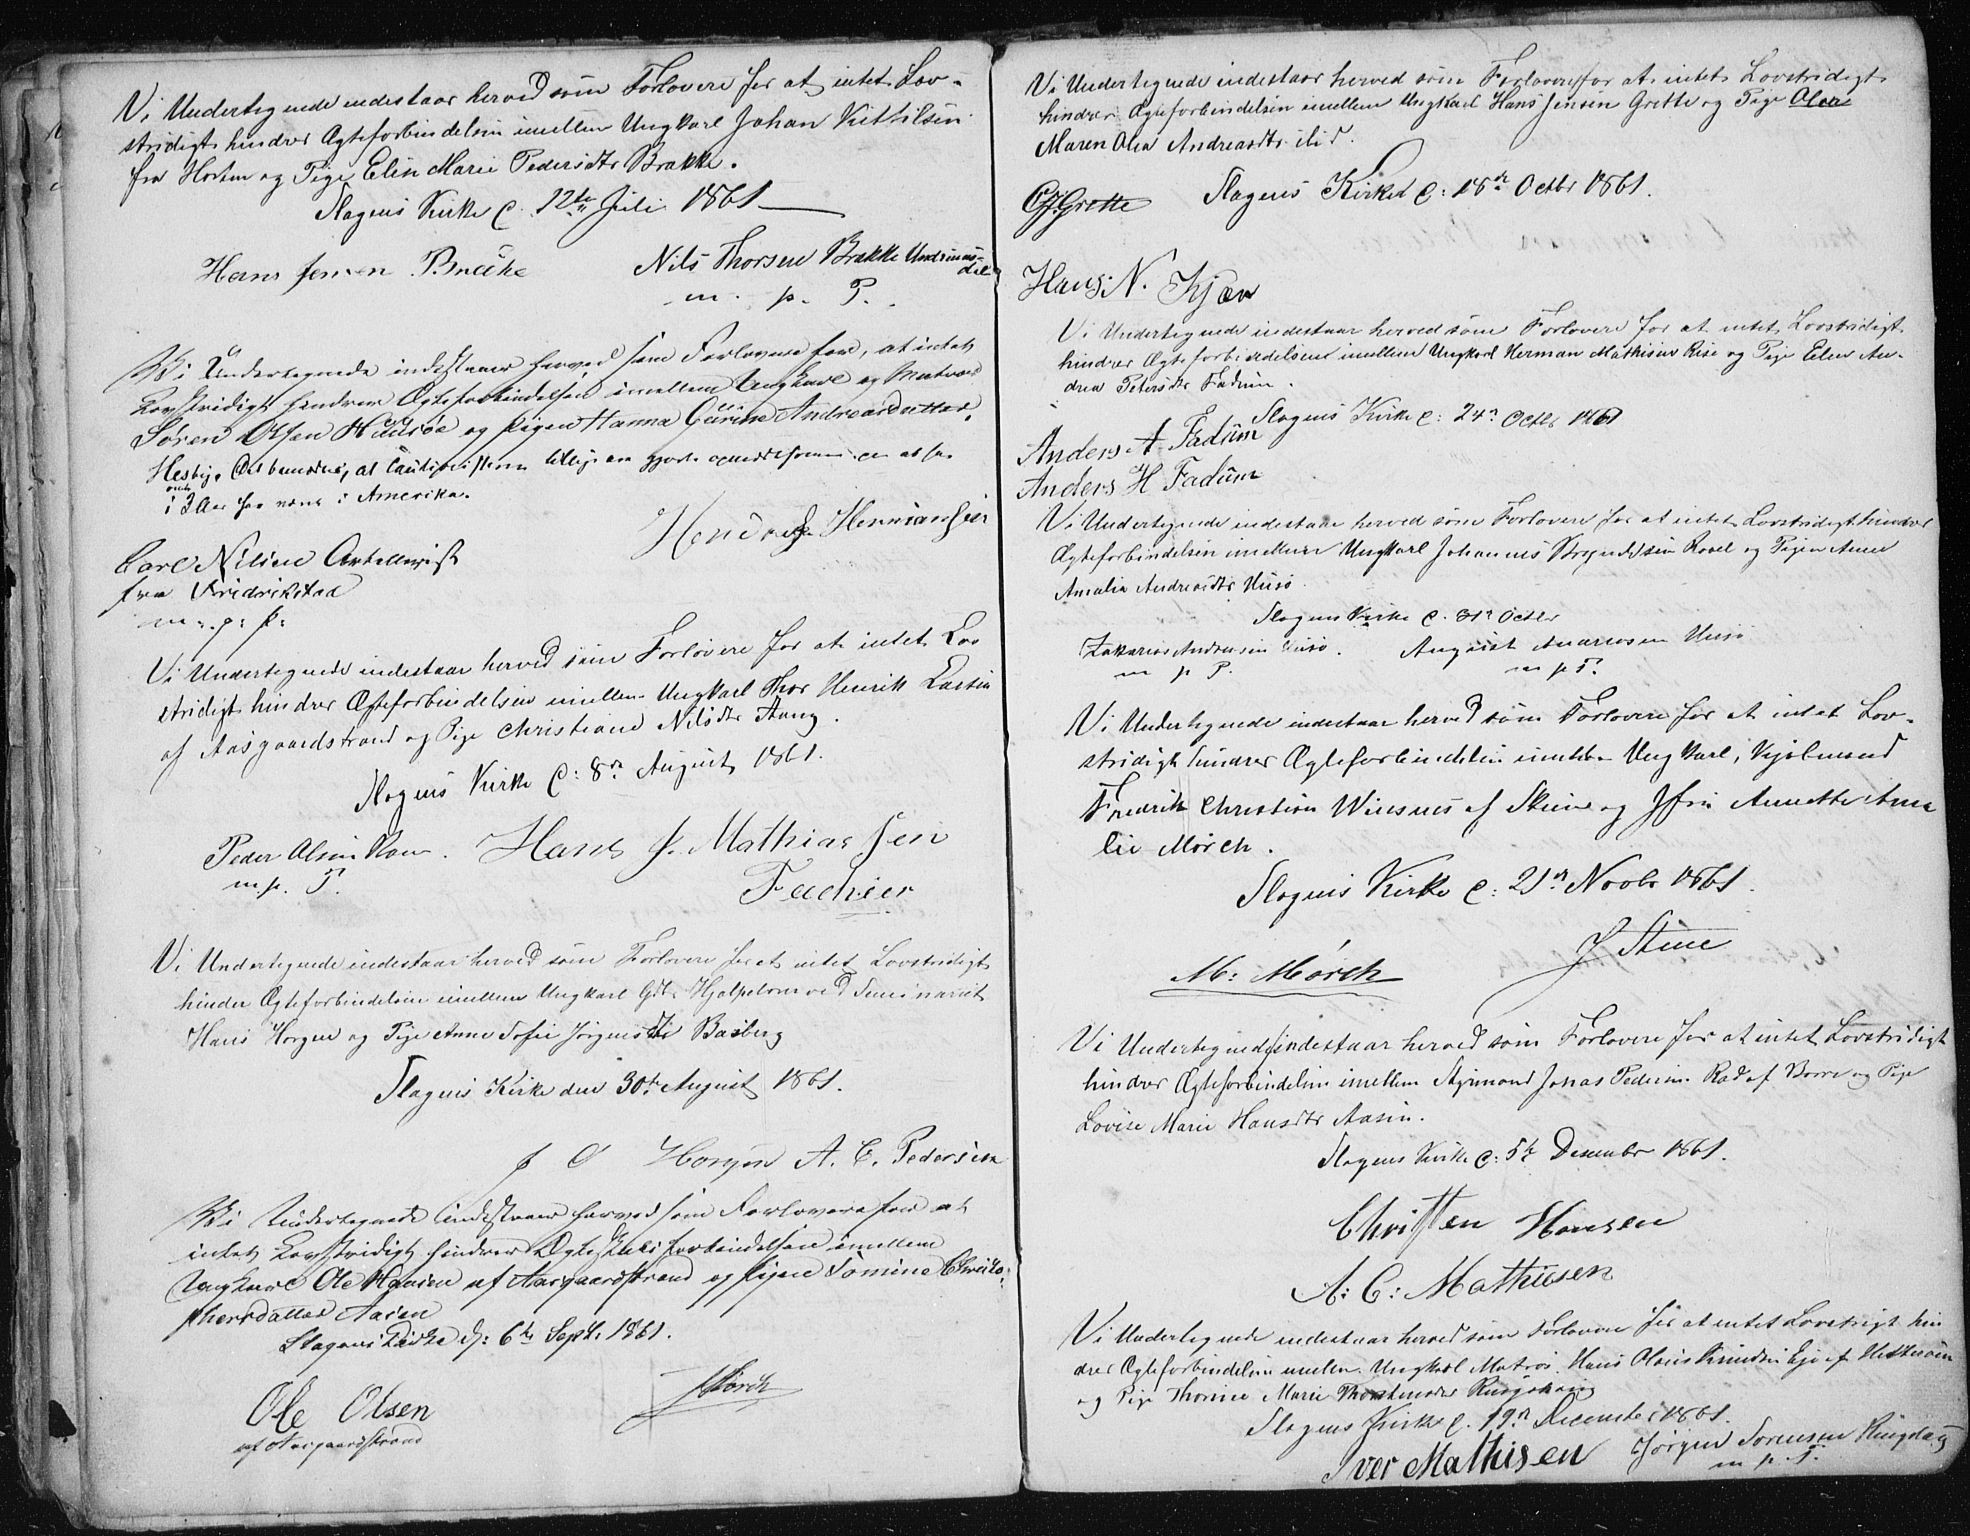 Vi Undertegnede indestaar herved som Forlovere for at intet Lov-
stridigt hindrer Ægteforbindelsen imellem Ungkarl Johan Kittilsen
fra Horten og Pige Elen Marie Pedersdtr Brække.
Slagens Kirke d. 12te Juli 1861
Hans Jensen Bræke Nils Thorsen Brække Undrums-
dal
m. p. P.
Vi Undertegnede indestaaer herved som Forlovere for, at intet
Lovstridigt hindrer Ægteforbindelsen imellem Ungkarl og Matros
Søren Olsen Husøe og Pigen Hanna Gurine Andreasdatter
Hesby. at
i 3 Aar har været i Amerika.
Hermansen
Carl Nilsen Artellerist
fra Fridrikstad
m: p: p:
Vi Undertegnede indestaar herved som Forlovere for at intet Lov
stridigt hindrer Ægteforbindelsen imellem Ungkarl Thor Henrik Larsen
af Aasgaardstrand og Pige Christiane Nilsdtr Aaug.
Slagens Kirke d: 8de August 1861.
Peder Olsen Hans J. Mathiassen
m. p. P.
Vi Undertegnede indestaar herved som Forlovere for at intet Lovstridigt
hinder Ægteforbindelsen imellem Ungkarl Hjelpelærer ved Seminariet
Hans Horgen og Pige Anne Sofie Jörgensdtr Basberg
Slagens Kirke den 30te August 1861.
J O Horgen A. C. Pedersen
Vi Undertegnede indestaaer herved som Forlovere for at
intet Lovstridigt hindrer Ægteskabsforbindelsen imellem
Ungkarl Ole Hansen af Aasgaardstrand og Pigen Tomine Christo:
phersdatter Aasen
Slagens Kirke d: 6te Septb. 1861.
Ole Olsen
af Aasgaardstrand
Vi Undertegnede indestaar herved som Forlovere for at intet Lovstridigt
hindrer Ægteforbindelsen imellem Ungkarl Hans Jensen Grette og Pige Olea
Maren Olea Andreasdtr
Slagens Kirke d: 18de Octbr 1861.
Grette
Hans N. Kjær
Vi Undertegnede indestaar herved som Forlovere for at intet Lovstridigt
hindrer Ægteforbindelsen imellem Ungkarl Herman Mathisen Rise og Pige Elen An-
drea Petersdtr Fadum.
Slagens Kirke d: 24de Octbr 1861
Anders A Fadum
Anders H Fadum
Vi Undertegnede indestaar herved som Forlovere for at intet Lovstridigt hindrer
Ægteforbindelsen imellem Ungkarl Johannes og Pigen Anne
Amalia Andreasdtr Husø.
Slagens Kirke d. 31te Octbr
Zakarias Andersen Husø. August Andersen Husø
m p P. m p P.
Vi Undertegnede indestaar herved som Forlovere for at intet Lov-
stridigt hindrer Ægteforbindelsen imellem Ungkarl, Kjøbmand
Fredrik Christian Winsnes af Skien og Jfru Annette Ama
lie Mørch.
Slagens Kirke d: 21de Novbr 1861.
M: Mørch J Stene
Vi Undertegnede indestaar herved som Forlovere for at intet Lovstridigt
hindrer Ægteforbindelsen imellem Styrmand Jonas Pedersen Rød af Borre og Pige
Lovise Marie Hansdtr Aasen.
Slagens Kirke d: 5te December 1861.
Christen Hansen
A: C: Mathiesen
Vi Undertegnede indestaar herved som Forlovere for at intet Lovstrigt hin
drer Ægteforbindelsen imellem Ungkarl Matros Hans Olaus Knudsen
og Pige Thorine Marie
Slagens Kirke d. 19de December 1861.
Iver Mathisen Jørgen Sørensen Ringshaug
m p P.